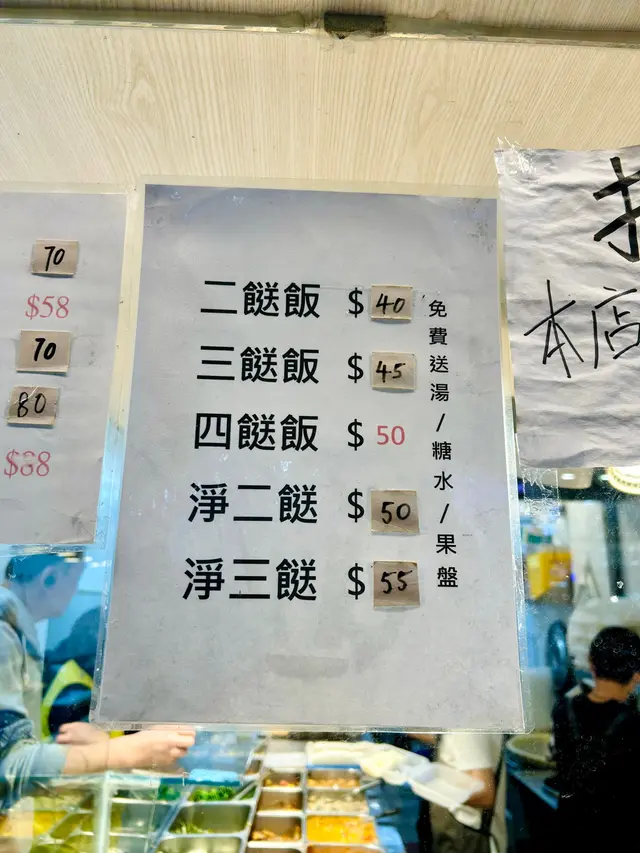 70
$58
70
80
$88
二餸飯 $40
三餸飯 $45
四餸飯 $50
淨二餸 $50
淨三餸 $55
免費送湯/糖水/果盤
本店